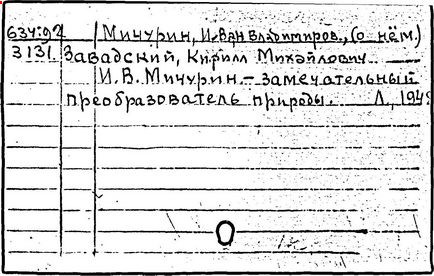 634:92 Мичурин, Иван Владимиров., (о нём.)
3131. Завадский, Кирилл Михайлович.
И.В. Мичурин. – замечательный
преобразователь природы. Л., 194